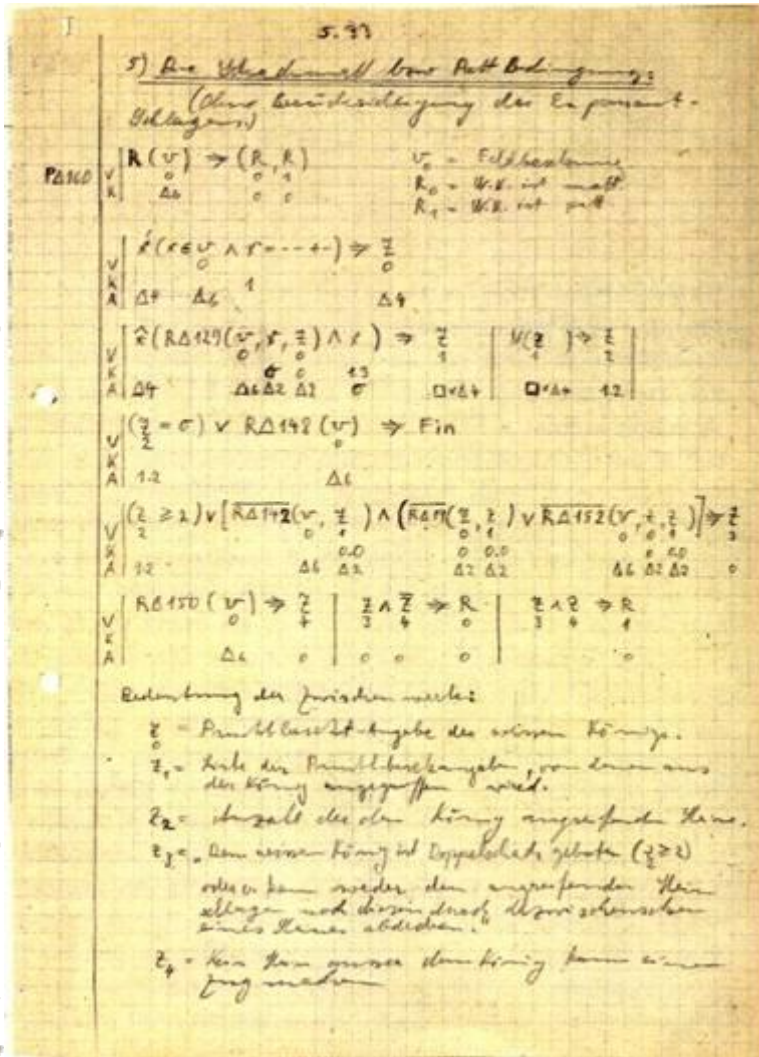 5.93
5) Die Schachmatt bzw Patt Bedingung:
(Ohne Berücksichtigung des En passant-
Schlagens)
PΔ160
R(v) ⇒ (R, R)
0 0 1
V
K Δ6 0 0
v₀ = Feldbesetzung
R₀ = W.K. ist matt
R₁ = W.K. ist patt
x́(x ∈ v ∧ x = --- + -) ⇒ Z
V 0 0
K 1
A Δ4 Δ6 Δ4
x̂(RΔ129(v, x, Z) ∧ x) ⇒ Z | N(Z) ⇒ Z
V 0 0 1 1 2
K σ 0 1.3
A Δ4 Δ6 Δ2 Δ2 σ □×Δ4 □×Δ4 1.2
(Z = σ) ∨ RΔ148(v) ⇒ Fin
V 2 0
K
A 1.2 Δ6
(Z ≥ 2) ∨ [RΔ142(v, Z) ∧ (RΔ19(Z, Z) ∨ RΔ152(v, Z, Z)] ⇒ Z
V 2 0 1 0 1 0 0 1 3
K 0.0 0 0.0 0 0.0
A 1.2 Δ6 Δ2 Δ2 Δ2 Δ6 Δ2 Δ2 0
RΔ150(v) ⇒ Z | Z ∧ Z ⇒ R | Z ∧ Z ⇒ R
V 0 4 3 4 0 3 4 1
K
A Δ6 0 0 0 0 0
Bedeutung der Zwischenwerte:
Z₀ = Punktbesetzt-Angabe des weissen Königs.
Z₁ = Liste der Punktbesetztangaben, von denen aus
der König angegriffen wird.
Z₂ = Anzahl der den König angreifenden Steine.
Z₃ = „Dem weissen König ist Doppelschach geboten (Z₂ ≥ 2)
oder er kann weder den angreifenden Stein
schlagen noch diesen durch Dazwischenziehen
eines Steines abdecken."
Z₄ = Kein Stein ausser dem König kann einen
Zug machen